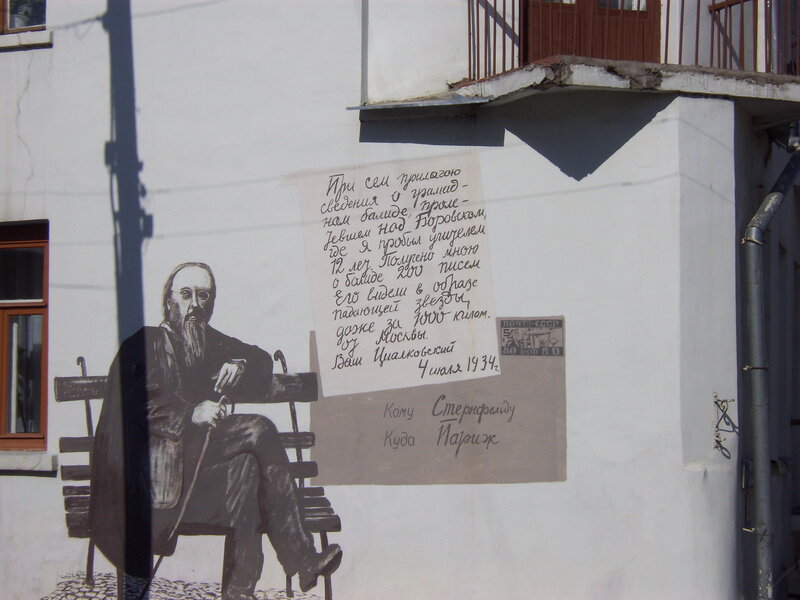 При сем прилагаю
сведения о грамад-
нам балиде, проле-
тевшем над Боровском,
где я пробыл учителем
12 лет. Получено мною
о балиде 200 писем
Его видели в образе
падающей звезды,
даже за 1000 килом.
от Москвы.
Ваш Циалковский
4 июля 1934г.
ПОЧТА СССР
50 КОП 50
Кому Стернфельду
Куда Париж